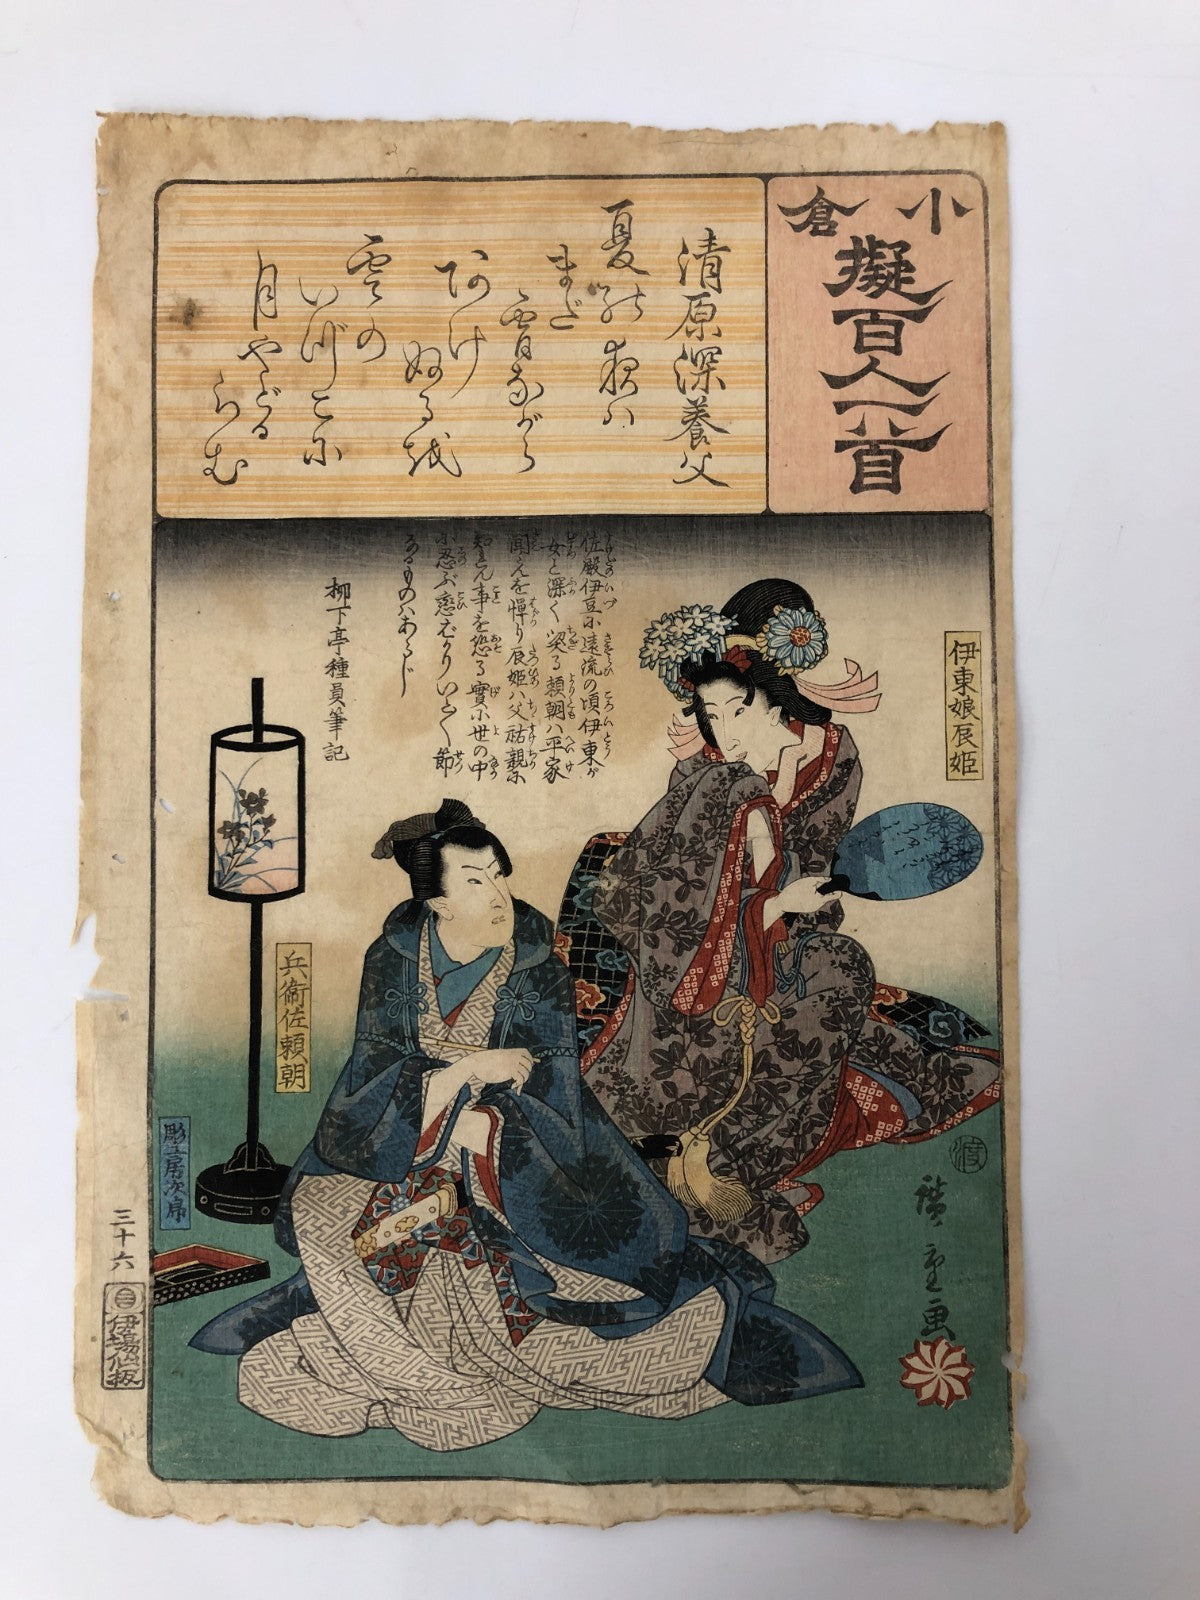 小倉
擬百人一首
清原深養父
夏能夜ハ
まだ
宵ながら
あけ
ぬるを
雲の
いづこに
月やどる
らむ
佐殿伊豆に遠流の頃伊東が
女と深く契る頼朝ハ平家
聞えを憚り辰姫ハ父祐親に
知れん事を恐る實に世の中
に忍ぶ戀ばかりいと切
なるものハあらじ
柳下亭種員筆記
伊東娘辰姫
兵衛佐頼朝
彫工房次郎
三十六
伊場仙板
渡
廣重画